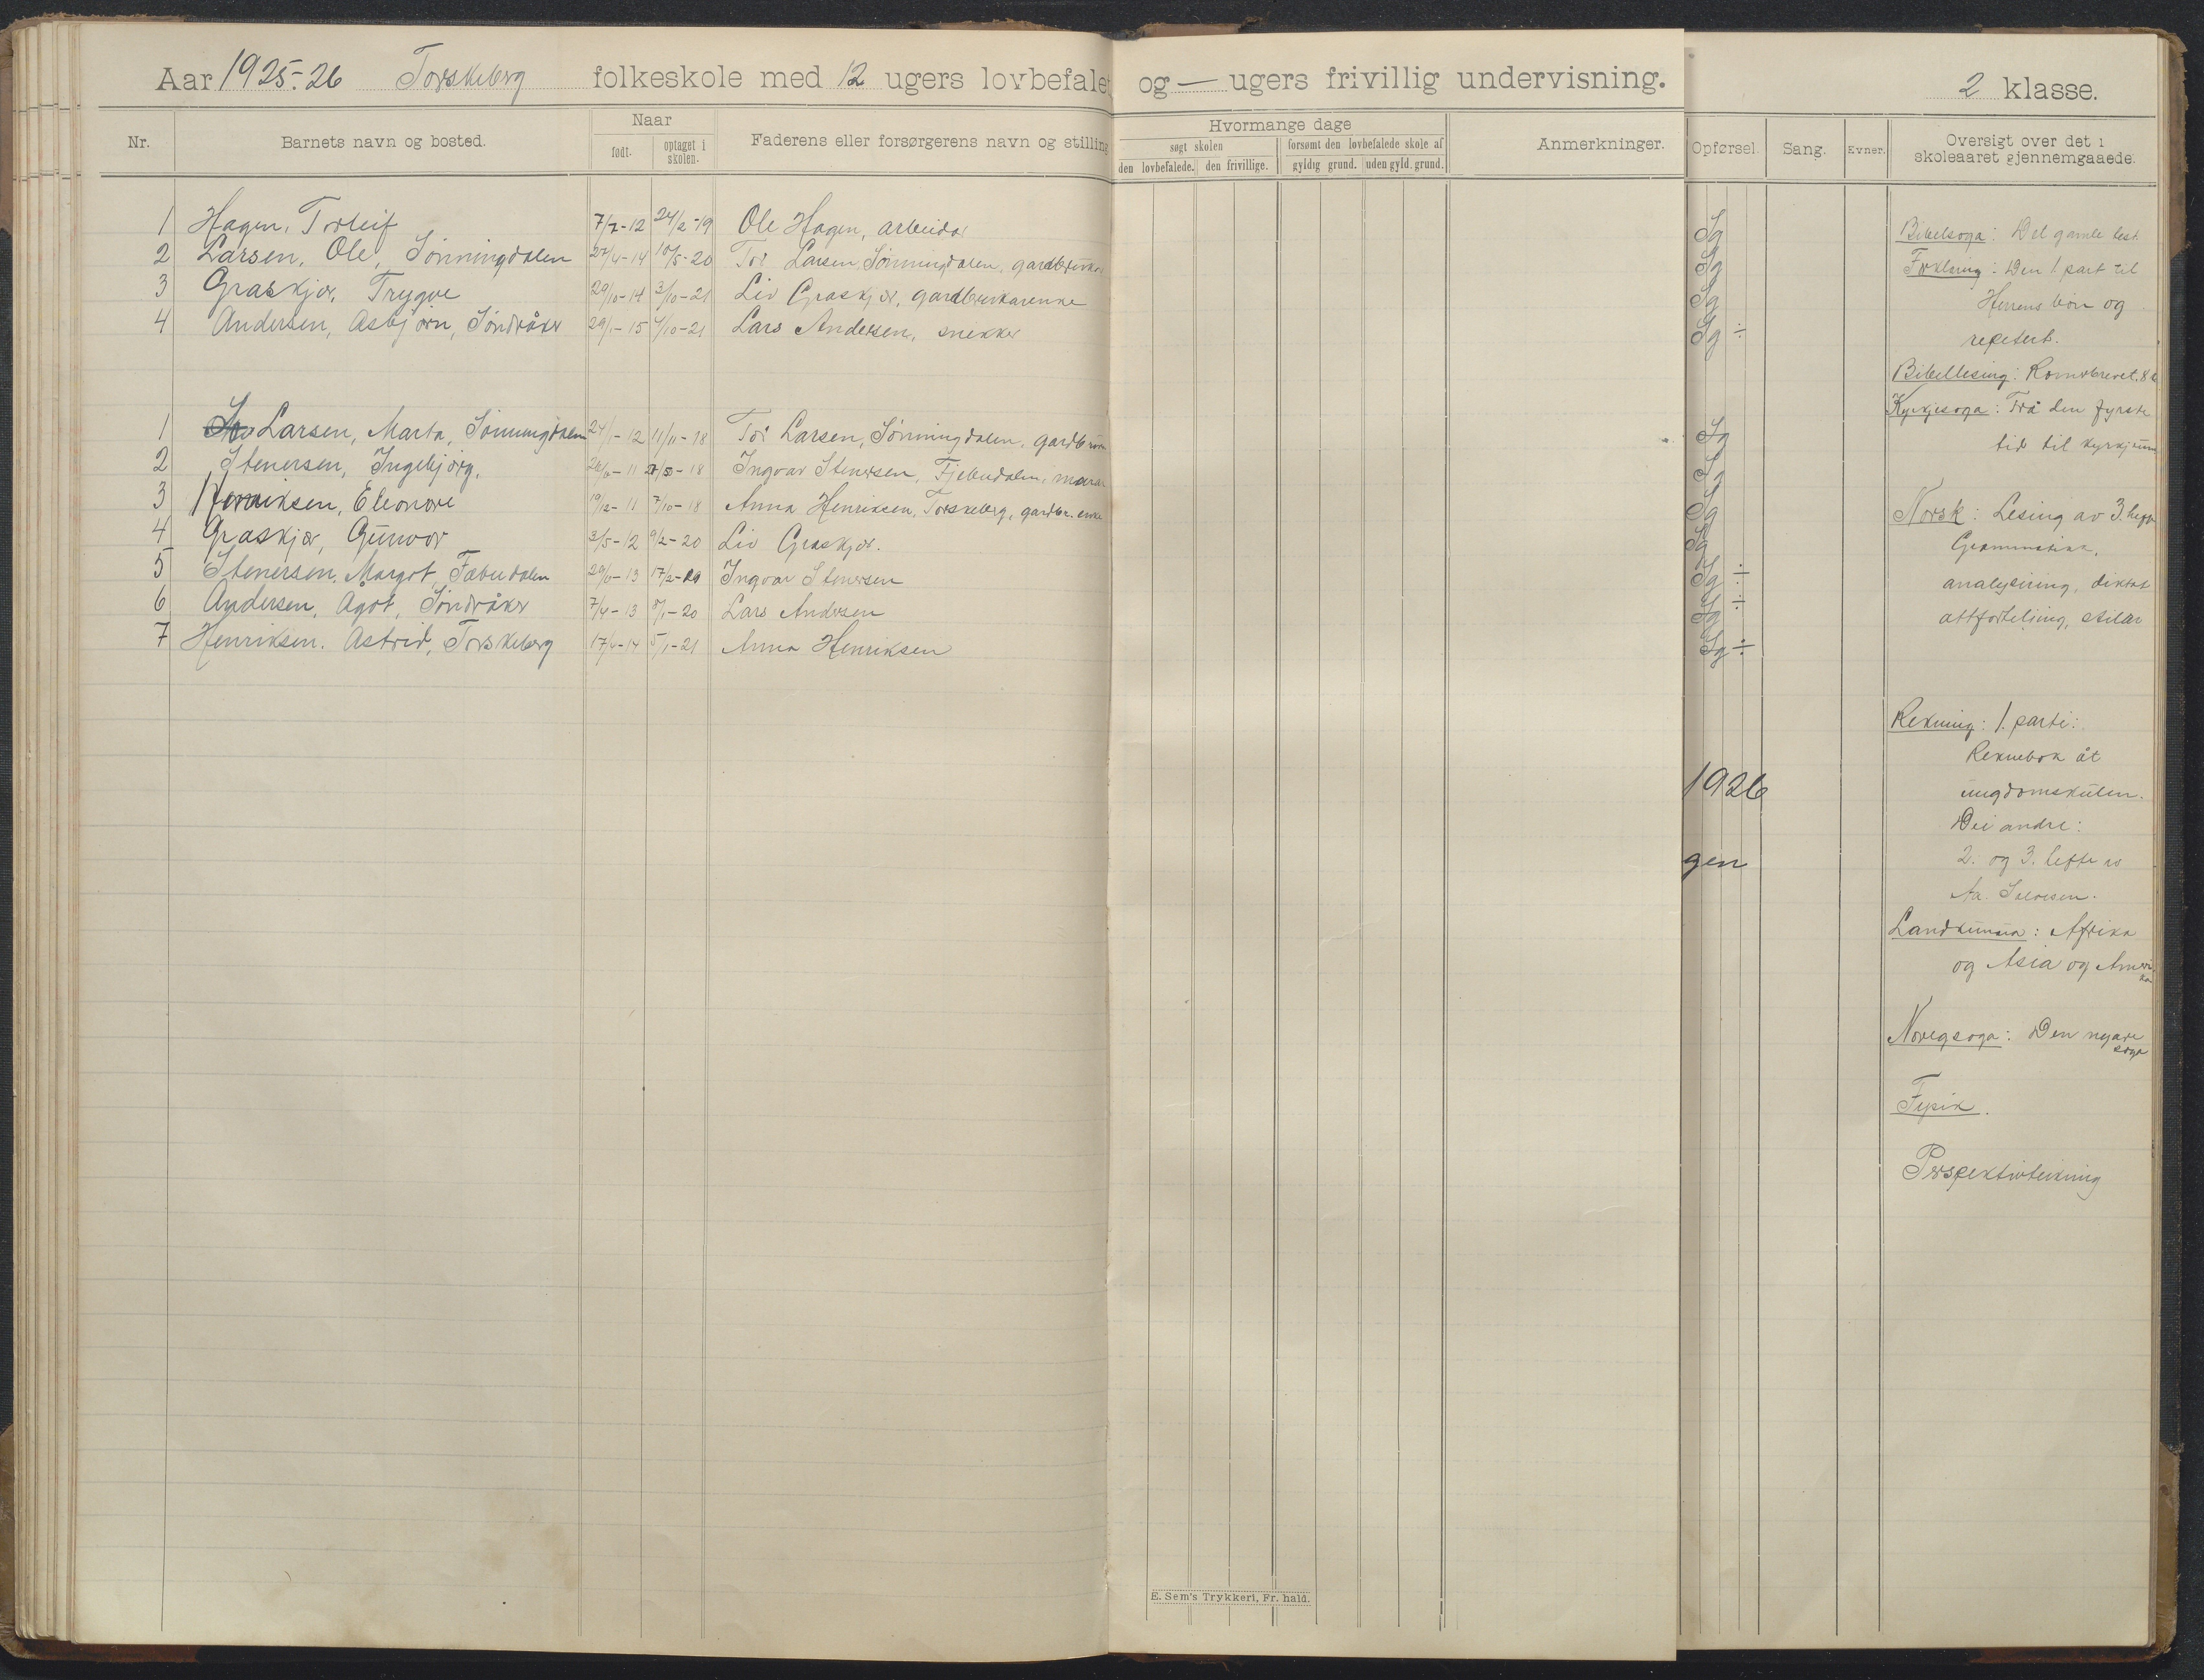 Aar 1925-26 Torskeberg folkeskole med 12 ugers lovbefalet og — ugers frivillig undervisning. 2 klasse.
Nr. Barnets navn og bosted. Naar født. optaget i skolen. Faderens eller forsørgerens navn og stilling
Hvormange dage søgt skolen den lovbefalede. den frivillige. forsømt den lovbefalede skole af gyldig grund. uden gyld. grund. Anmerkninger.
Opførsel. Sang. Evner. Oversigt over det i skoleaaret gjennemgaaede.
1 Hagen, Torleif 7/7-12 24/2-19 Ole Hagen, arbeidar Sg
2 Larsen, Ole, Sønningdalen 27/4-14 10/5-20 Tor Larsen, Sønningdalen, gardbrukar Sg
3 Graskjær, Trygve 29/10-14 3/10-21 Liv Graskjær, gardbrukarenke Sg
4 Andersen, Asbjørn, Søndråker 29/1-15 4/10-21 Lars Andersen, snekker Sg ÷
1 Larsen, Marta, Sønningdalen 24/1-12 11/11-18 Tor Larsen, Sønningdalen, gardbruk Sg
2 Stenersen, Ingebjørg, 18 Ingvar Stenersen, Fjebudalen, murar Sg
3 Henriksen, Eleonore 19/12-11 7/10-18 Anna Henriksen, Torskeberg, gardbr. enke Sg
4 Graskjær, Gunvor 3/5-12 9/2-20 Liv Graskjær. Sg
5 Stenersen, Margot, Fæbudalen 29/6-13 17/2-19 Ingvar Stenersen Sg ÷
6 Andersen, Ågot, Søndråker 7/4-13 8/1-20 Lars Andersen Sg ÷
7 Henriksen, Astrid, Torskeberg 17/6-14 5/1-21 Anna Henriksen Sg ÷
1926
gen
Bibelsoga: Det gamle test.
Forklaring: Den 1. part til
Herrens bøn og
repetert.
Bibellesing: Romerbrevet. 8
Kyrkjesoga: Frå den fyrste
tid til kyrkj
Norsk: Lesing av 3. hefte
Grammatikk,
analysering, diktat
attforteljing, stilar
Rekning: 1. parti:
Reknebok åt
ungdomskulen.
Dei andre:
2. og 3. hefte av
Aa. Salvesen.
Landkunna: Afrika
og Asia og Amerika
Noregsoga: Den nyare soga
Fysik.
Perspektivteikning
E. Sem's Trykkeri, Fr. hald.